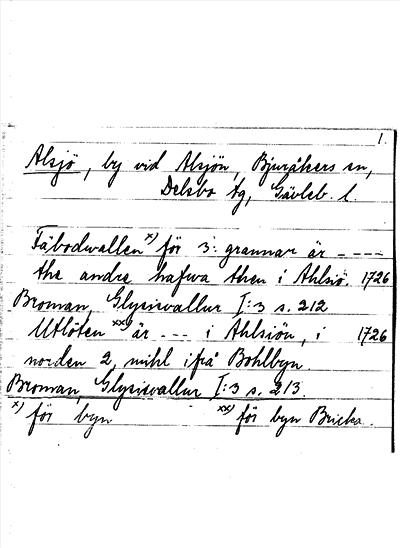 1.
Alsjö, by vid Alsjön, Bjuråkers sn,
Delsbo tg, Gävleb. l.
Fäbodwallen x) för 3: grannar är ----
the andre hafwa then i Ahlsiö. 1726
Broman, Glysisvallur I:3 s. 212
Utlöten xx) är --- i Ahlsiön, i 1726
norden 2 mihl ifrå Bohlbyn.
Broman, Glysisvallur I:3 s. 213.
x) för byn xx) för byn Bricka.